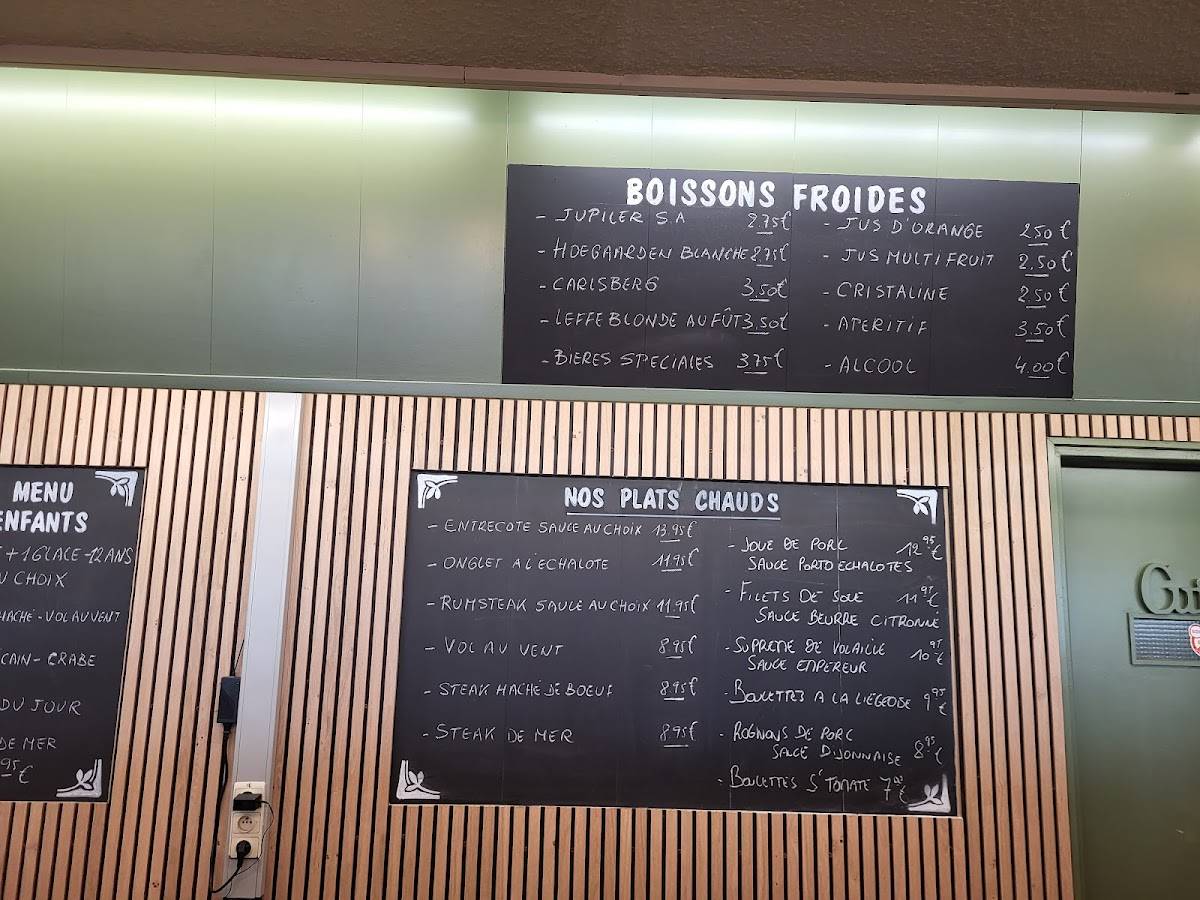 BOISSONS FROIDES
- JUPILER S.A 2.75€
- HOEGAARDEN BLANCHE 2.75€
- CARLSBERG 3.50€
- LEFFE BLONDE AU FÛT 3.50€
- BIERES SPECIALES 3.75€
- JUS D'ORANGE 2.50€
- JUS MULTI FRUIT 2.50€
- CRISTALINE 2.50€
- APERITIF 3.50€
- ALCOOL 4.00€
MENU
ENFANTS
+ 1 GLACE -12 ANS
CHOIX
HACHÉ - VOL AU VENT
CAIN - CRABE
DU JOUR
DE MER
95 €
NOS PLATS CHAUDS
- ENTRECOTE SAUCE AU CHOIX 13.95€
- ONGLET A L'ECHALOTE 11.95€
- RUMSTEAK SAUCE AU CHOIX 11.95€
- VOL AU VENT 8.95€
- STEAK HACHÉ DE BOEUF 8.95€
- STEAK DE MER 8.95€
- JOUE DE PORC 12.95€
SAUCE PORTO ECHALOTES
- FILETS DE SOLE
SAUCE BEURRE CITRONNÉ
- SUPREME DE VOLAILLE
SAUCE EMPEREUR
- BOULETTES A LA LIEGEOISE 9.95€
- ROGNONS DE PORC
SAUCE DIJONNAISE 8.95€
- BOULETTES S'TOMATE 7.00€